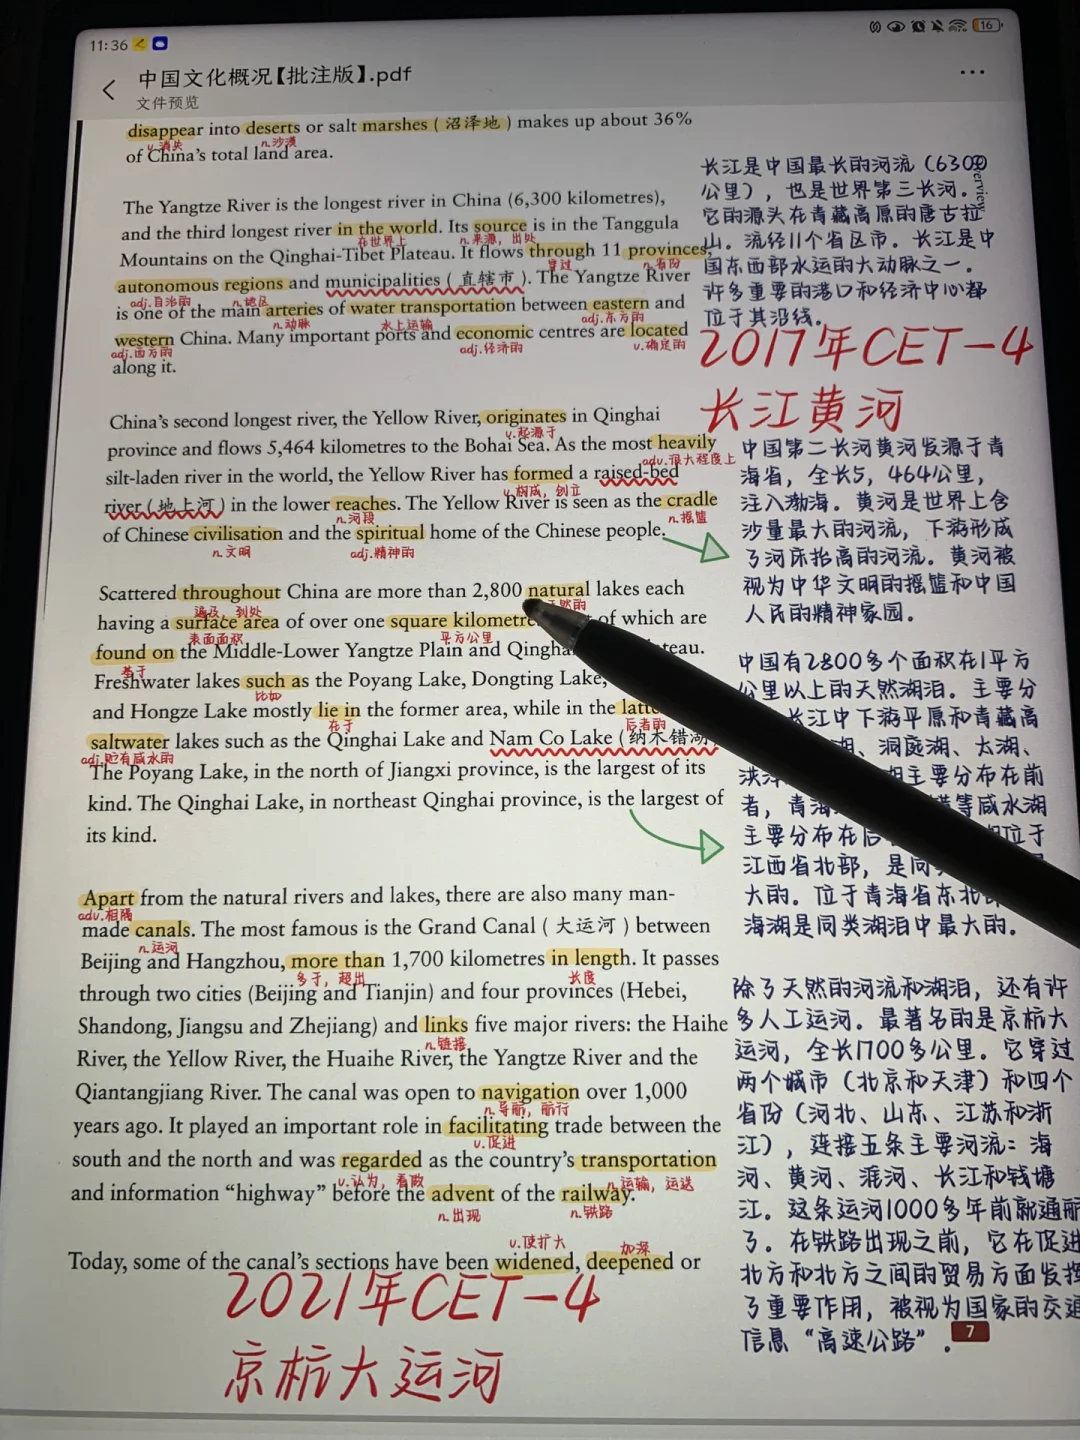 11:36
16
中国文化概况【批注版】.pdf
文件预览
disappear into deserts or salt marshes (沼泽地) makes up about 36%
v.消失 n.沙漠
of China's total land area.
The Yangtze River is the longest river in China (6,300 kilometres),
and the third longest river in the world. Its source is in the Tanggula
在世界上 n.来源，出处
Mountains on the Qinghai-Tibet Plateau. It flows through 11 provinces,
穿过 n.省份
autonomous regions and municipalities (直辖市). The Yangtze River
adj.自治的 n.地区
is one of the main arteries of water transportation between eastern and
n.动脉 水上运输 adj.东方的
western China. Many important ports and economic centres are located
adj.西方的 adj.经济的 v.确定的
along it.
长江是中国最长的河流（6300
公里），也是世界第三长河。
它的源头在青藏高原的唐古拉
山。流经11个省区市。长江是中
国东西部水运的大动脉之一。
许多重要的港口和经济中心都
位于其沿线。
erview
2017年CET-4
长江黄河
China's second longest river, the Yellow River, originates in Qinghai
v.起源于
province and flows 5,464 kilometres to the Bohai Sea. As the most heavily
adv.很大程度上
silt-laden river in the world, the Yellow River has formed a raised-bed
v.构成，创立
river (地上河) in the lower reaches. The Yellow River is seen as the cradle
n.河段 n.摇篮
of Chinese civilisation and the spiritual home of the Chinese people.
n.文明 adj.精神的
中国第二长河黄河发源于青
海省，全长5，464公里，
注入渤海。黄河是世界上含
沙量最大的河流，下游形成
了河床抬高的河流。黄河被
视为中华文明的摇篮和中国
人民的精神家园。
Scattered throughout China are more than 2,800 natural lakes each
遍及，到处 然的
having a surface area of over one square kilometre of which are
表面面积 平方公里
found on the Middle-Lower Yangtze Plain and Qingha teau.
基于
Freshwater lakes such as the Poyang Lake, Dongting Lake,
比如
and Hongze Lake mostly lie in the former area, while in the latt
在于 后者的
saltwater lakes such as the Qinghai Lake and Nam Co Lake (纳木错湖
adj.贮有咸水的
The Poyang Lake, in the north of Jiangxi province, is the largest of its
kind. The Qinghai Lake, in northeast Qinghai province, is the largest of
its kind.
中国有2800多个面积在1平方
公里以上的天然湖泊。主要分
长江中下游平原和青藏高
湖、洞庭湖、太湖、
主要分布在前
者，青海 等咸水湖
主要分布在后 位于
江西省北部，是同
大的。位于青海省东北
海湖是同类湖泊中最大的。
Apart from the natural rivers and lakes, there are also many man-
adv.相隔
made canals. The most famous is the Grand Canal (大运河) between
n.运河
Beijing and Hangzhou, more than 1,700 kilometres in length. It passes
多于，超出 长度
through two cities (Beijing and Tianjin) and four provinces (Hebei,
Shandong, Jiangsu and Zhejiang) and links five major rivers: the Haihe
n.链接
River, the Yellow River, the Huaihe River, the Yangtze River and the
Qiantangjiang River. The canal was open to navigation over 1,000
n.导航，航行
years ago. It played an important role in facilitating trade between the
v.促进
south and the north and was regarded as the country's transportation
v.认为，看做 n.运输，运送
and information "highway" before the advent of the railway.
n.出现 n.铁路
除了天然的河流和湖泊，还有许
多人工运河。最著名的是京杭大
运河，全长1700多公里。它穿过
两个城市（北京和天津）和四个
省份（河北、山东、江苏和浙
江），连接五条主要河流：海
河、黄河、淮河、长江和钱塘
江。这条运河1000多年前就通航
了。在铁路出现之前，它在促进
北方和北方之间的贸易方面发挥
了重要作用，被视为国家的交通
信息“高速公路”。
7
v.使扩大 加深
Today, some of the canal's sections have been widened, deepened or
2021年CET-4
京杭大运河